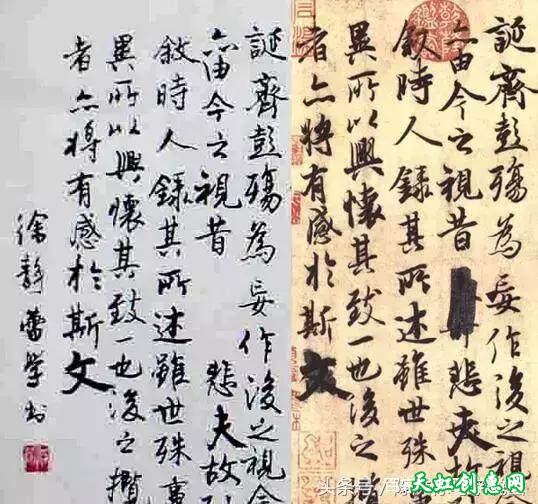 誕齊彭殤為妄作後之視今
亦由今之視昔 悲夫故列
敘時人錄其所述雖世殊事
異所以興懷其致一也後之攬
者亦將有感於斯文
徐靜蕾學書
誕齊彭殤為妄作後之視
亦由今之視昔 悲夫故
敘時人錄其所述雖世殊
異所以興懷其致一也後之
者亦將有感於斯文
头条号/
天虹创意网